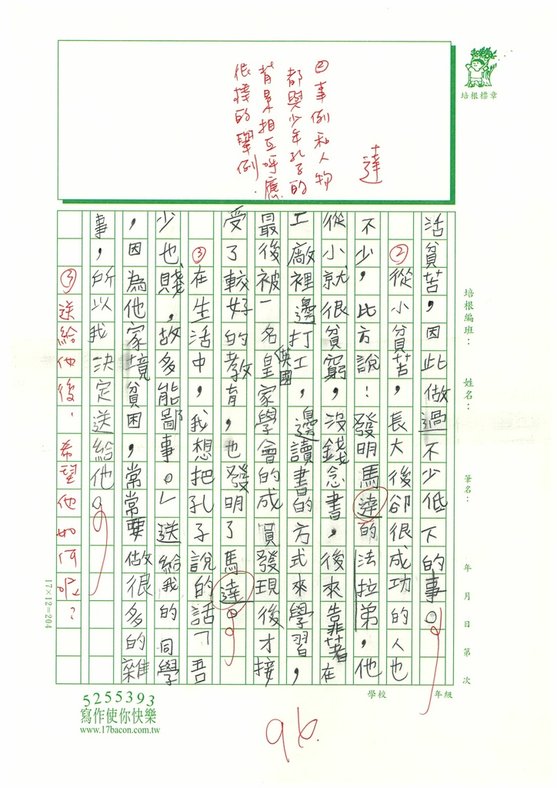 ②事例和人物
都與少年孔子的
背景相互呼應
很棒的舉例.
達
培根標章
活貧苦，因此做過不少低下的事。
②從小貧苦，長大後卻很成功的人也
不少，比方說：發明馬達的法拉第，他
從小就很貧窮，沒錢念書，後來靠著在
工廠裡邊打工，邊讀書的方式來學習，
最後被一名英國皇家學會的成員發現後才接
受了較好的教育，也發明了馬達。
③在生活中，我想把孔子說的話「吾
少也賤，故多能鄙事。」送給我的同學
，因為他家境貧困，常常要做很多的雜
事，所以我決定送給他。
③送給他後，希望他如何呢？
培根編班：
姓名：
筆名：
年 月 日 第 次
學校 年級
17×12=204
5255393
寫作使你快樂
www.17bacon.com.tw
96.